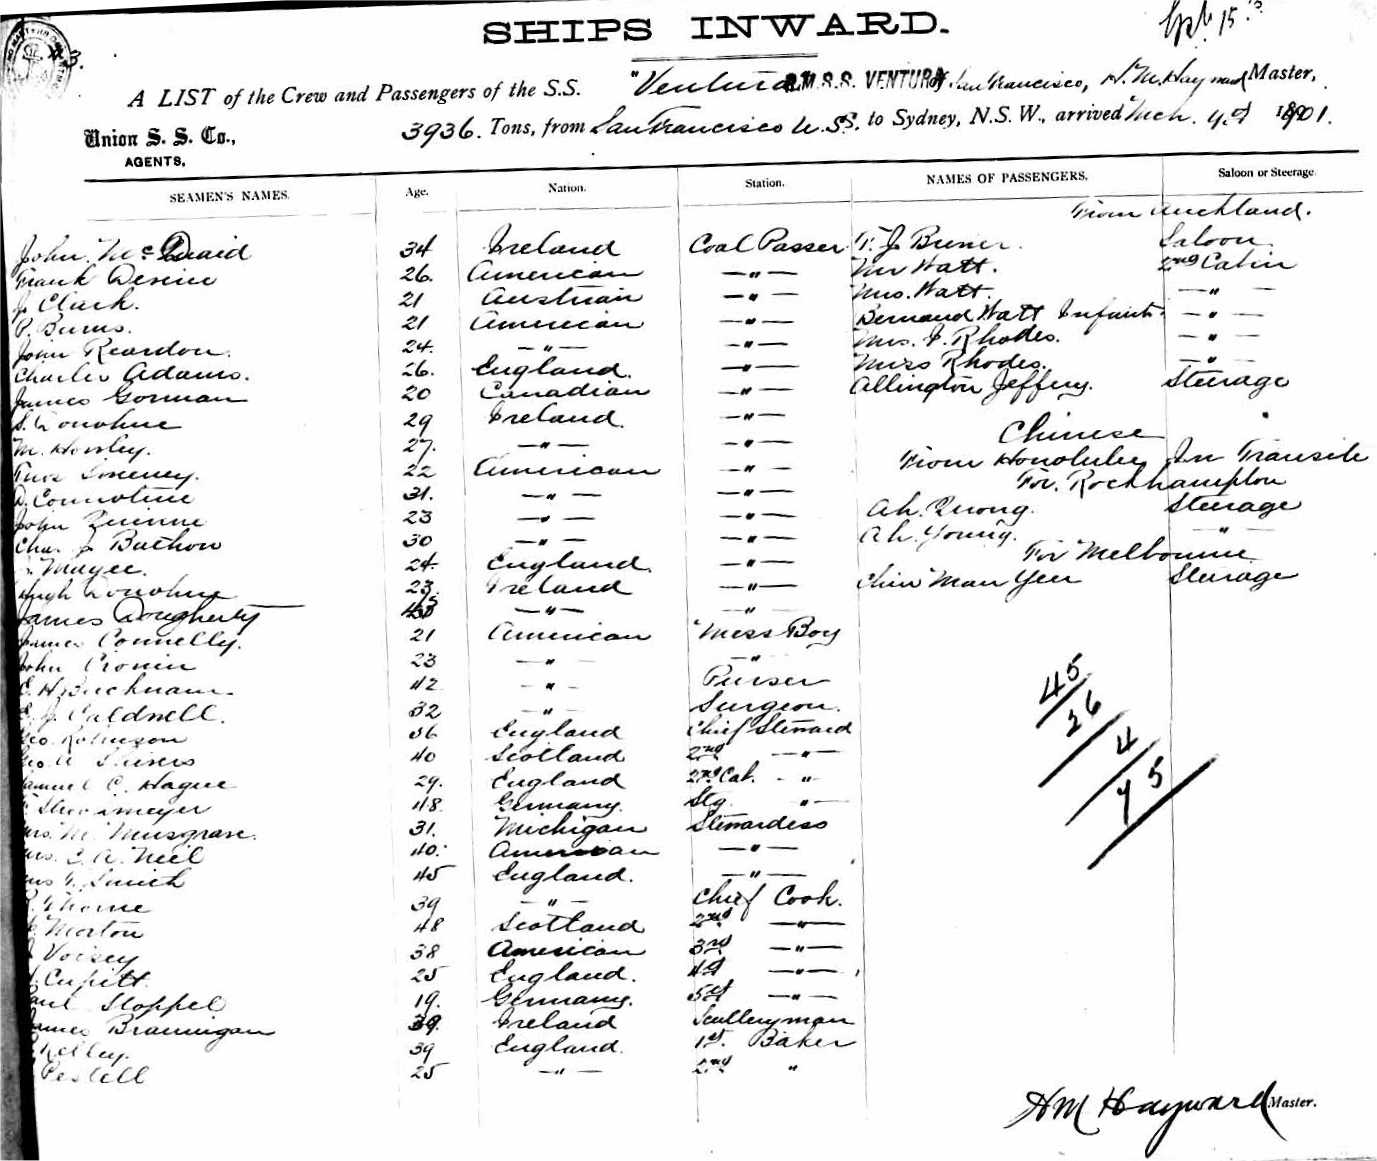 SHIPS INWARD.
3.
A LIST of the Crew and Passengers of the S.S. "Ventura R.M.S.S. VENTURA of San Francisco, H. M. Hayward Master,
Union S. S. Co., AGENTS.
3936. Tons, from San Francisco U.S. to Sydney, N.S.W., arrived Mch. 1901.
SEAMEN'S NAMES. Age. Nation. Station. NAMES OF PASSENGERS. Saloon or Steerage.
From Auckland.
John McQuaid 34 Ireland Coal Passer Saloon
Frank Devine 26. American —"— Mr Watt. 2nd Cabin
J. Clark. 21 Austrian —"— Mrs. Watt. —"—
P. Burns. 21 American —"— Bernard Watt Infant —"—
John Reardon. 24. —"— —"— Mrs. Rhodes. —"—
Charles Adams. 26. England. —"— Miss Rhodes. —"—
James Gorman 20 Canadian —"— Allington Jeffery. Steerage
S. Donohue 29 Ireland. —"—
M. 27. —"— —"— Chinese
22 American —"— From Honolulu In Transit
31. —"— —"— For. Rockhampton
John 23 —"— —"— Ah. Quong. Steerage
Chas. J. 30 —"— —"— Ah. Young. —"—
Magee. 24. England. —"— For Melbourne
Hugh Donohue 23. Ireland —"— Man Yen Steerage
James Dougherty —"— —"—
James Connelly. 21 American Mess Boy
John Cronin 23 —"— —"—
42 —"— Purser
E. J. Caldwell. 32 —"— Surgeon.
Geo. Robinson 36 England Chief Steward
40 Scotland 2nd —"—
Samuel C. Hague 29. England 2nd Cab. —"—
48 Germany. Stg. —"—
Mrs. M. Musgrave. 31. Michigan Stewardess
Mrs. E. A. Neil 40. American —"—
Mrs Smith 45 England. —"—
Thorne 39 —"— Chief Cook.
Morton 48 Scotland 2nd —"—
Voisey 38 American 3rd —"—
Cupitt 25 England. 4th —"—
Paul Stoppel 19. Germany. 5th —"—
James Brannigan 39. Ireland Sculleryman
Kelley. 39 England. 1st. Baker
Pestell 25 —"— 2nd "
45
26
4
75
H M Hayward Master.